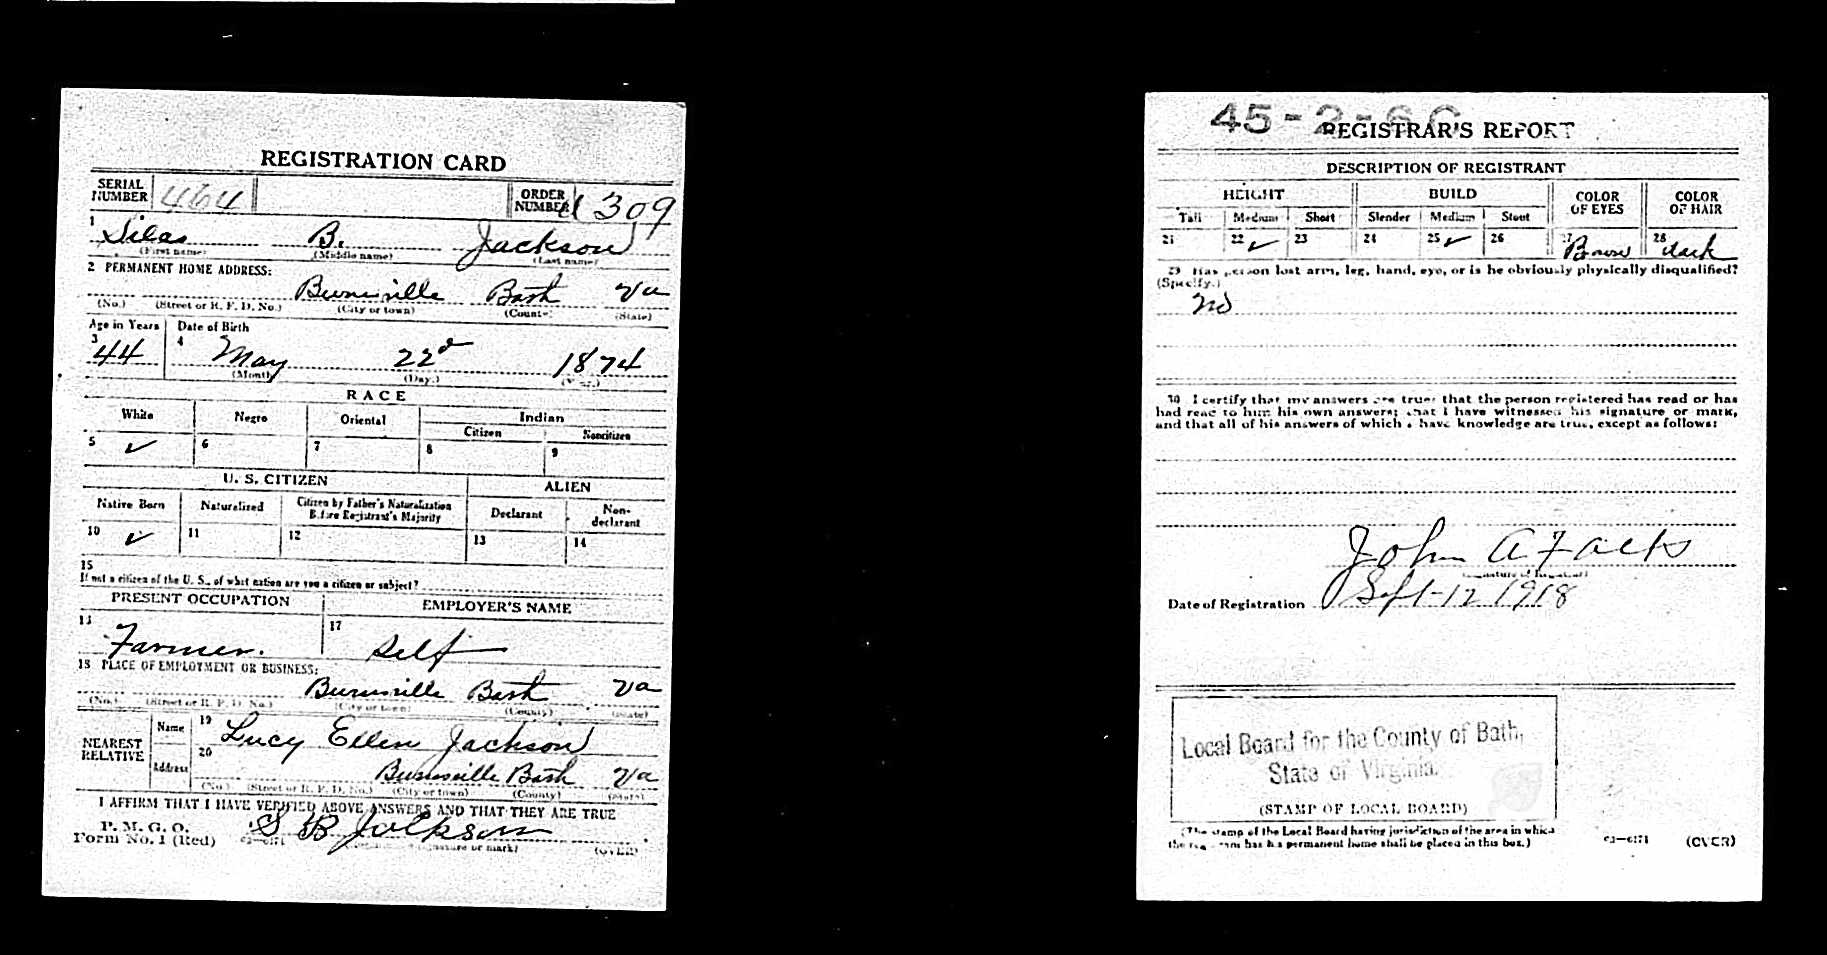 REGISTRATION CARD
SERIAL NUMBER 464 ORDER NUMBER 309
1 Silas B. Jackson
(First name) (Middle name) (Last name)
2 PERMANENT HOME ADDRESS:
Burnsville Bath Va
(No.) (Street or R. F. D. No.) (City or town) (County) (State)
Age in Years Date of Birth
3 44 4 May 22d 1874
(Month) (Day.) (Year.)
RACE
White Negro Oriental Indian
Citizen Noncitizen
5 ✓ 6 7 8 9
U. S. CITIZEN ALIEN
Native Born Naturalized Citizen by Father's Naturalization Before Registrant's Majority Declarant Non-declarant
10 ✓ 11 12 13 14
15
If not a citizen of the U. S., of what nation are you a citizen or subject?
PRESENT OCCUPATION EMPLOYER'S NAME
Farmer. 17 Self
18 PLACE OF EMPLOYMENT OR BUSINESS:
Burnsville Bath Va
(No.) (Street or R. F. D. No.) (City or town) (County) (State)
NEAREST RELATIVE Name 19 Lucy Ellen Jackson
Address 20 Burnsville Bath Va
(No.) (Street or R. F. D. No.) (City or town) (County) (State)
I AFFIRM THAT I HAVE VERIFIED ABOVE ANSWERS AND THAT THEY ARE TRUE
P. M. G. O.
Form No. 1 (Red) S B Jackson
(Signature or mark) (OVER)
45-2-6 C
REGISTRAR'S REPORT
DESCRIPTION OF REGISTRANT
HEIGHT BUILD COLOR OF EYES COLOR OF HAIR
Tall Medium Short Slender Medium Stout
21 22 ✓ 23 24 25 ✓ 26 27 Brown 28 dark
29 Has person lost arm, leg, hand, eye, or is he obviously physically disqualified?
(Specify.)
No
30 I certify that my answers are true; that the person registered has read or has
had read to him his own answers; that I have witnessed his signature or mark,
and that all of his answers of which I have knowledge are true, except as follows:
John A
(Signature of Registrar)
Date of Registration Sept-12 1918
Local Board for the County of Bath,
State of Virginia.
(STAMP OF LOCAL BOARD)
(The stamp of the Local Board having jurisdiction of the area in which
the registrant has his permanent home shall be placed in this box.)
03-6171 (OVER)